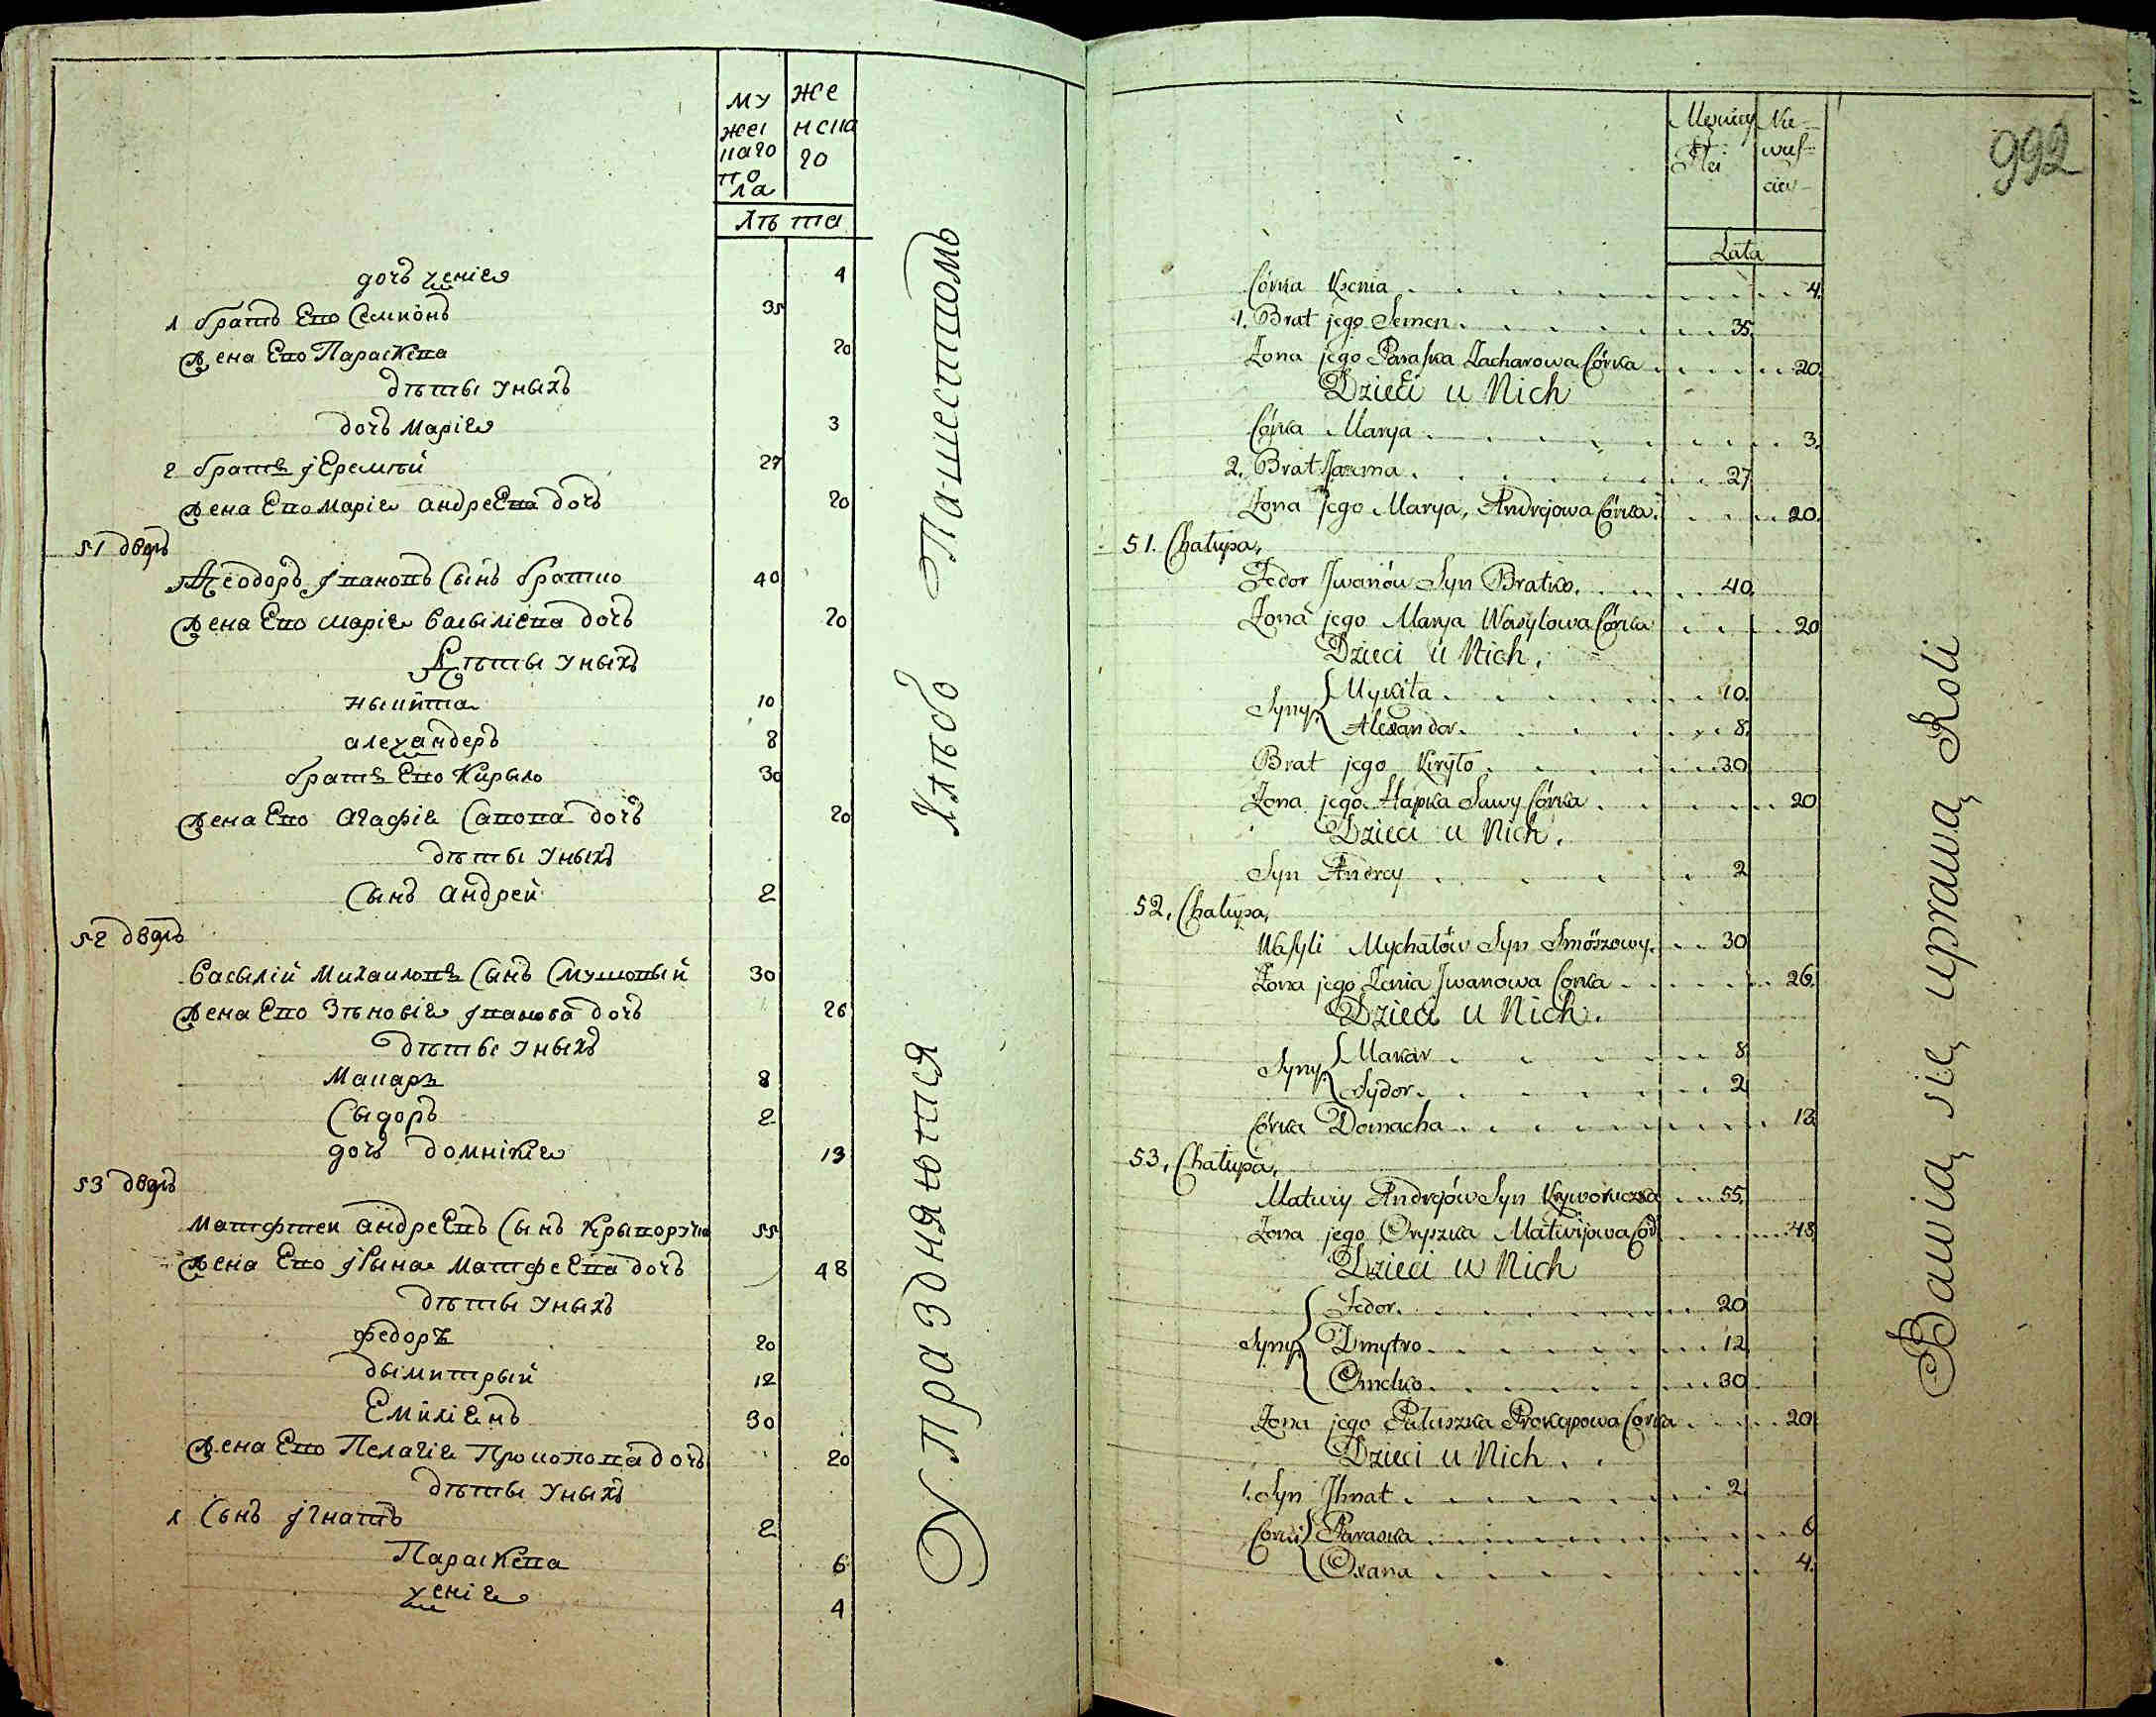 му
жес
каго
по
ла
же
нска
го
лѣта
дочъ Ѯеніѧ 4
1 братъ Его Семионъ 35
жена Его Параскева 20
дѣты уныхъ
дочъ Маріѧ 3
2 братъ Іеремѣй 27
жена Его Маріѧ андреева дочъ 20
51 дворъ
Феодоръ Івановъ Сынъ братко 40
жена Его маріѧ Василіева дочъ 20
Дѣты уныхъ
Ныкита 10
алеѯандеръ 8
братъ Его Кирыло 30
жена Его Агафіѧ Савова дочъ 20
дѣты уныхъ
Сынъ андрей 2
52 дворъ
Василій Михаиловъ Сынъ Смушовый 30
жена Его Зѣновіѧ Іванова дочъ 26
дѣты уныхъ
Макаръ 8
Сыдоръ 2
дочъ домнікіѧ 13
53 дворъ
Матфтеи андреевъ Сынъ Криворучка 55
жена Его Ірына Матфеева дочъ 48
дѣты уныхъ
Федоръ 20
дымитрый 12
Емиліѧнъ 30
жена Его Пелагіѧ Прокопова дочъ 20
дѣты уныхъ
1 Сынъ Ігнатъ 2
Параскева 6
Ѯеніѧ 4
Упраздняются Хлѣбо Пашествомъ
992
Męzkiey
Płci
Nie-
wies-
ciey
Lata
Córka Ksenia 4.
1. Brat jego Semen 35.
Zona jego Paraska Zacharowa Córka 20.
Dzieci u Nich
Córka Marya 3.
2. Brat Jarema 27
Zona jego Marya, Andrejowa Córka. 20.
51. Chałupa,
Fedor Iwanów Syn Bratko 40.
Zona jego Marya Wasylowa Córka 20
Dzieci u Nich.
Syny { Mykita 10.
Alexander 8.
Brat jego Kiryło 30
Zona jego Hapka Sawy Córka 20
Dzieci u Nich.
Syn Andrey 2
52. Chałupa,
Wasyli Mychałów Syn Smöszowy. 30
Zona jego Zenia Iwanowa Corka 26.
Dzieci u Nich.
Syny { Makar 8
Sydor. 2
Córka Domacha 13
53. Chałupa,
Matwiy Andrejów Syn Kryworuczka 55.
Zona jego Oryszka Matwijowa Cór 48
Dzieci u Nich
Syny { Fedor. 20
Dmytro 12
Omelko 30
Zona jego Pałaszka Prokopowa Corka 20
Dzieci u Nich.
1. Syn Ihnat 2
Corki { Paraska 6
Oxana 4.
Bawią się uprawą Roli